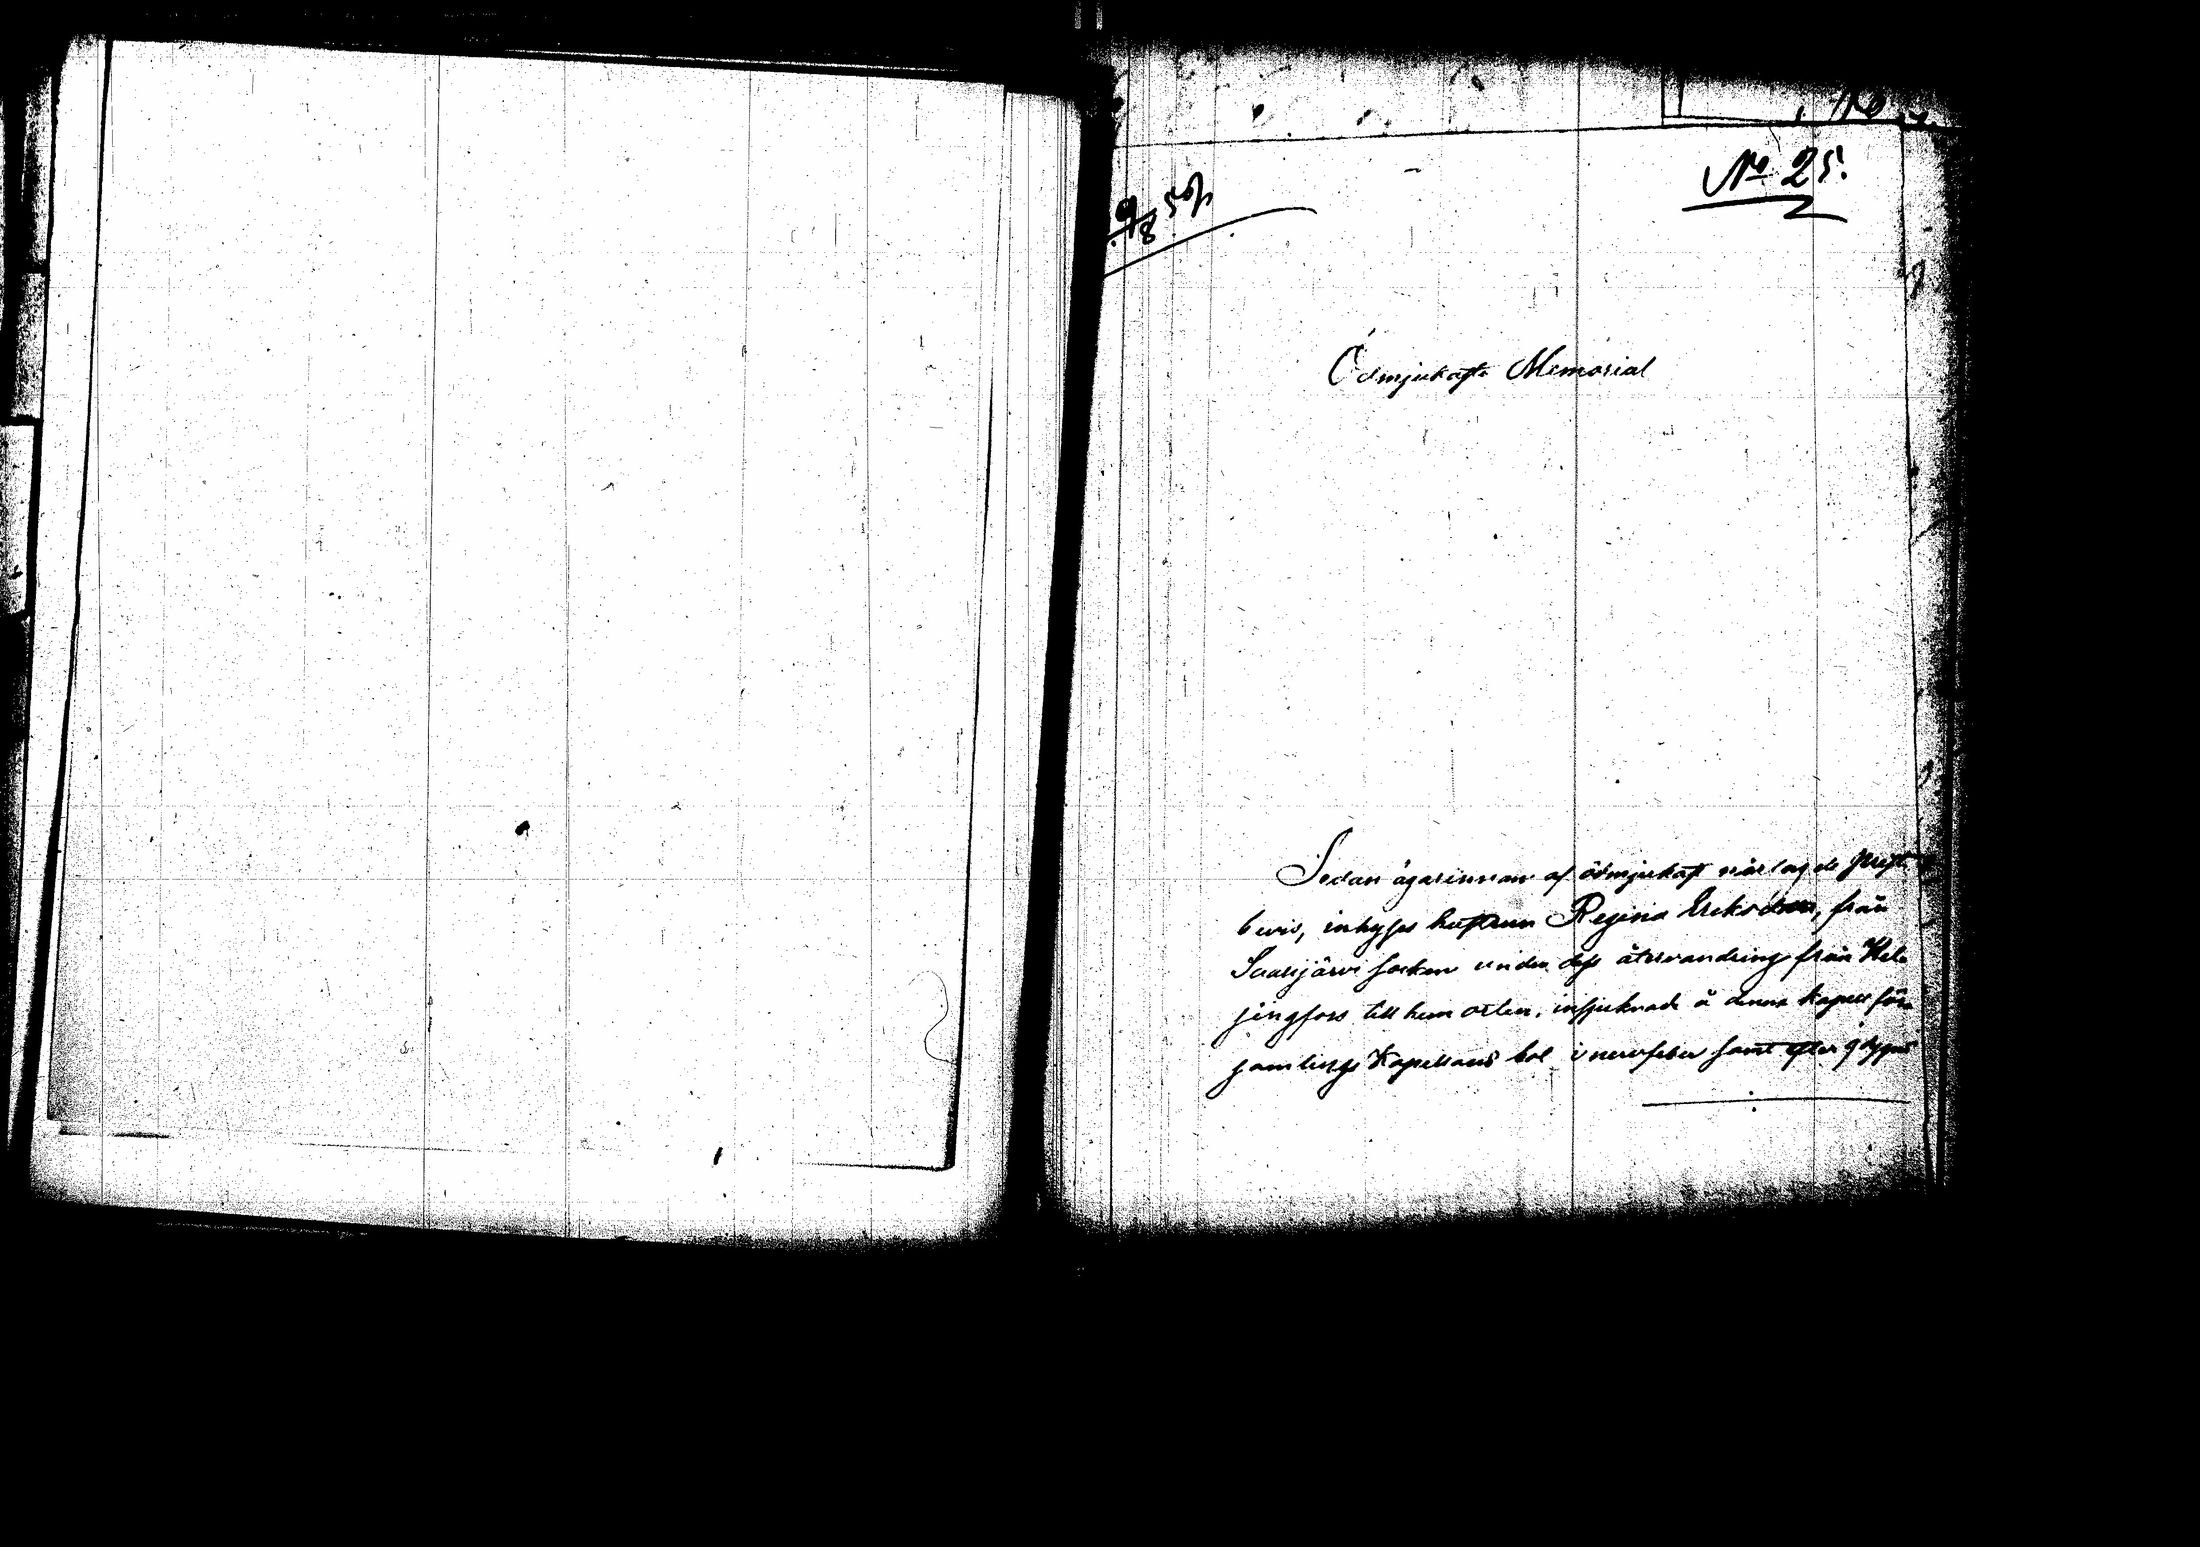 No 25.
9/8 57
Ödmjukaste Memorial
Sedan ägarinnan af ödmjukast närlagde prest
bevis, inhyses hustrun Regina Eriksdotter, från
Saarijärvi socken under dess återvandring från Hel-
singfors till hemorten, insjuknade å denna kapell för-
samlings Kapellans bol i nerffeber samt efter 9 dygns